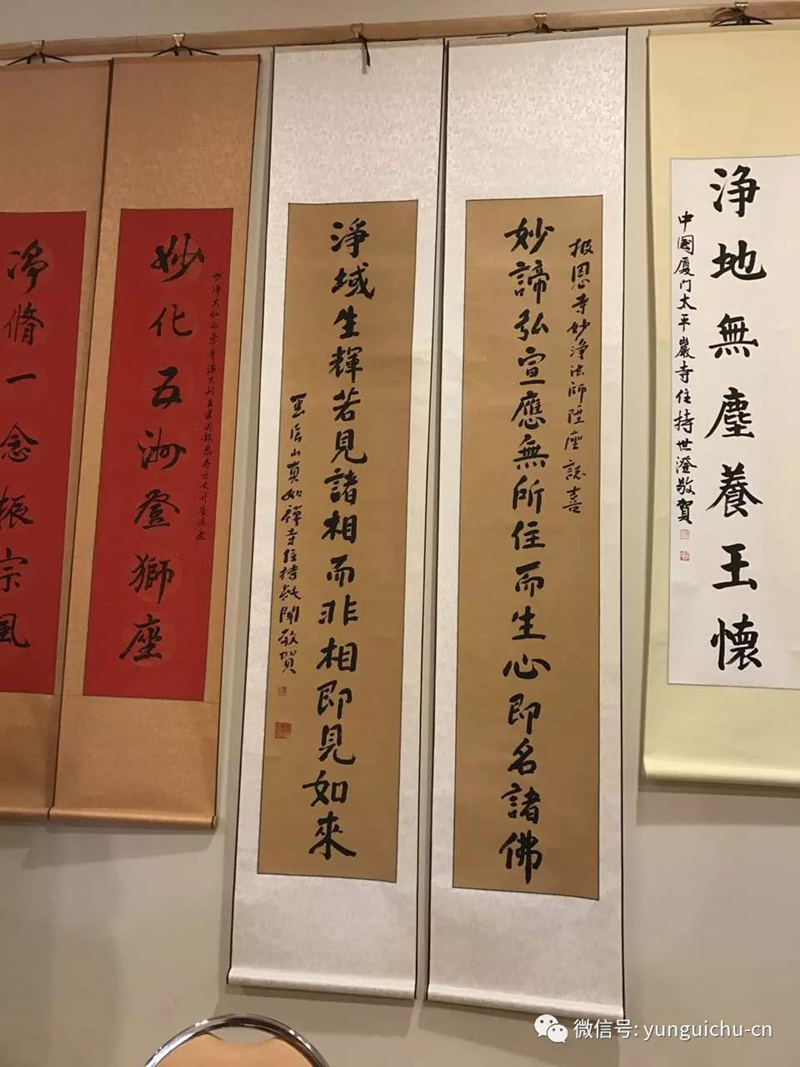 浄地無塵養王懷
中國廈门太平巖寺住持世澄敬賀
报恩寺妙淨法師陞座誌喜
妙諦弘宣應無所住而生心即名諸佛
淨域生輝若見諸相而非相即見如來
山真如禪寺住持敬賀
妙净大和尚荣膺澳大利亚
妙化五洲登獅座
净脩一念振宗風
微信号: yunguichu-cn